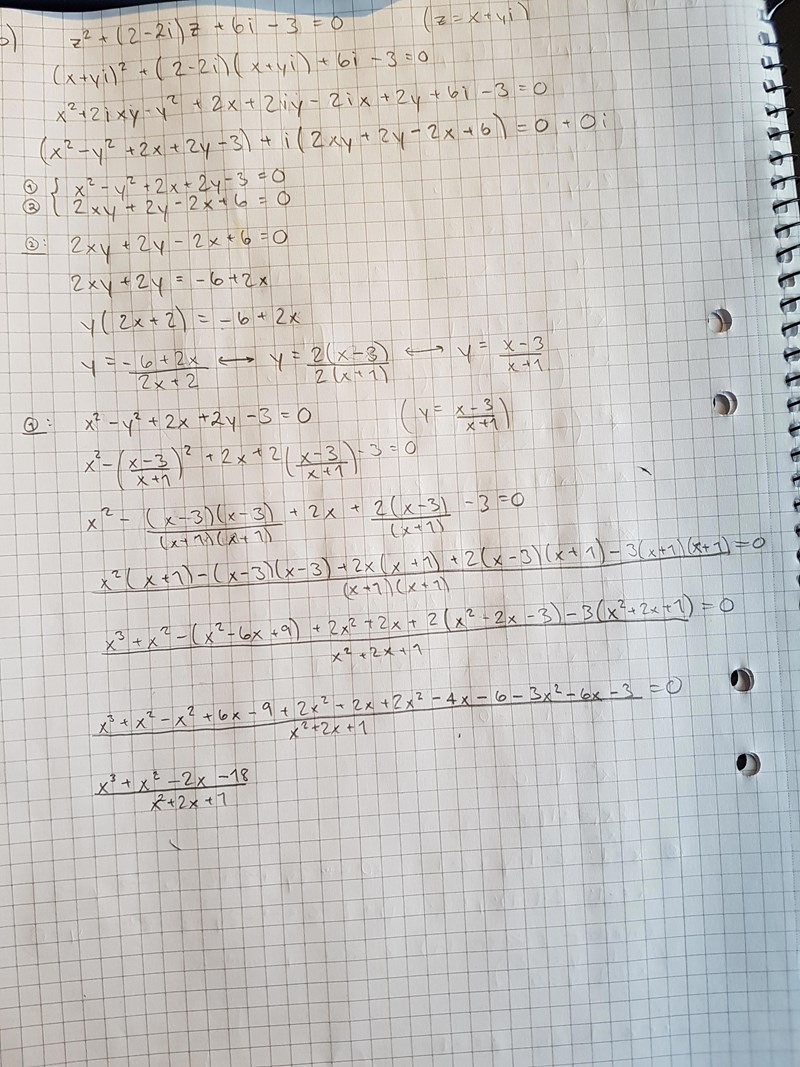 b) z² + (2-2i)z + 6i - 3 = 0 (z = x+yi)
(x+yi)² + (2-2i)(x+yi) + 6i - 3 = 0
x² + 2ixy - y² + 2x + 2iy - 2ix + 2y + 6i - 3 = 0
(x² - y² + 2x + 2y - 3) + i(2xy + 2y - 2x + 6) = 0 + 0i
① { x² - y² + 2x + 2y - 3 = 0
② { 2xy + 2y - 2x + 6 = 0
②: 2xy + 2y - 2x + 6 = 0
2xy + 2y = -6 + 2x
y(2x+2) = -6 + 2x
y = (-6+2x)/(2x+2) ⟷ y = 2(x-3)/2(x+1) ⟷ y = (x-3)/(x+1)
①: x² - y² + 2x + 2y - 3 = 0 (y = (x-3)/(x+1))
x² - ((x-3)/(x+1))² + 2x + 2((x-3)/(x+1)) - 3 = 0
x² - (x-3)(x-3)/(x+1)(x+1) + 2x + 2(x-3)/(x+1) - 3 = 0
x²(x+1) - (x-3)(x-3) + 2x(x+1) + 2(x-3)(x+1) - 3(x+1)(x+1) = 0
(x+1)(x+1)
x³ + x² - (x² - 6x + 9) + 2x² + 2x + 2(x² - 2x - 3) - 3(x² + 2x + 1) = 0
x² + 2x + 1
x³ + x² - x² + 6x - 9 + 2x² + 2x + 2x² - 4x - 6 - 3x² - 6x - 3 = 0
x² + 2x + 1
x³ + x² - 2x - 18
x² + 2x + 1